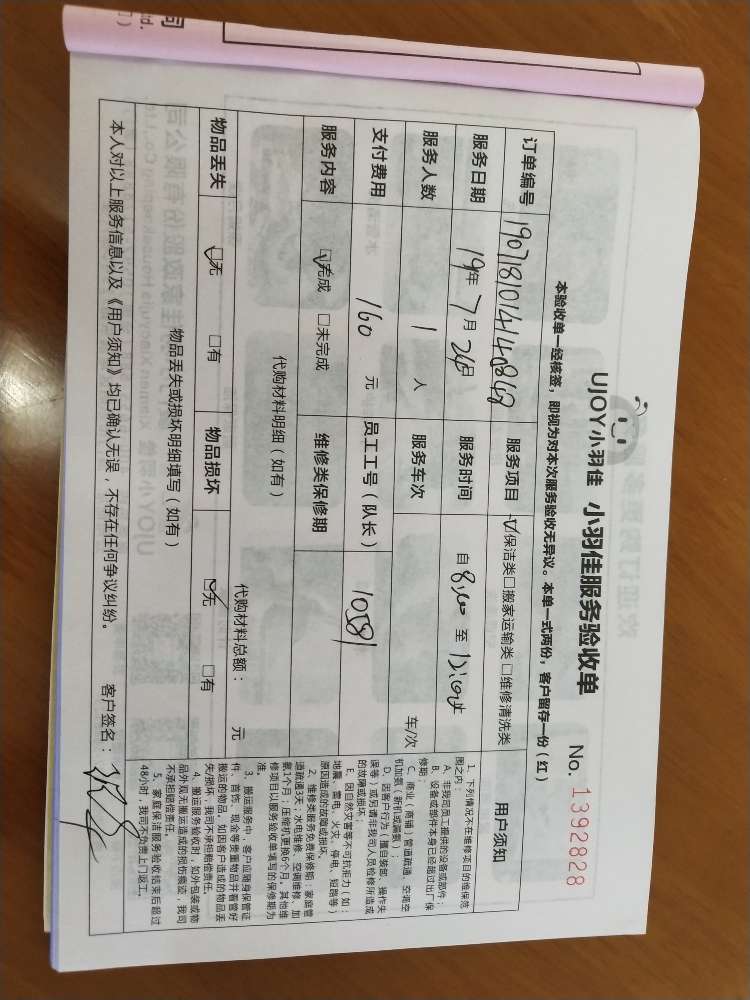 UJOY小羽佳 小羽佳服务验收单
No. 1392828
本验收单一经核签，即视为对本次服务验收无异议。本单一式两份，客户留存一份（红）
订单编号 服务项目 ☑保洁类□搬家运输类□维修清洗类 用户须知
服务日期 19年 7月 26日 服务时间 自 8:00 至 12:00
服务人数 1 人 服务车次 车/次
支付费用 160 元 员工工号（队长） 10581
服务内容 ☑完成 □未完成 维修类保修期
代购材料明细（如有） 代购材料总额： 元
物品丢失 ☑无 □有 物品损坏 ☑无 □有
物品丢失或损坏明细填写（如有）
1、下列情况不在维修项目的维保范
围之内：
A、非我司员工提供的设备或部件；
B、设备或部件本身已经超过出厂保
修期；
C、商业（商铺）管道疏通，空调空
机加氨（新机或漏氨）；
D、因客户行为（擅自装卸、操作失
误等）或另请非我司人员检修所造成
的故障或损坏；
E、因自然灾害等不可抗拒力（如：
地震、雷电、火灾、停电、短路等）
原因造成的故障或损坏。
2、维修类服务免费保修期：家庭管
道疏通3天；水电维修、空调维修、加
氨1个月；压缩机更换6个月，其他维
修项目以服务验收单填写的保修期为
准。
3、搬运服务中，客户应随身保管证
件、首饰、现金等贵重物品并看管好
搬运的物品，如因客户造成的物品丢
失/损坏，我司不承担赔偿责任。
4、搬运服务验收时，如外包装或物
品外观无搬运造成的损伤痕迹，我司
不承担赔偿责任。
5、家庭保洁服务验收结束后超过
48小时，我司不负责上门返工。
本人对以上服务信息以及《用户须知》均已确认无误，不存在任何争议纠纷。 客户签名：